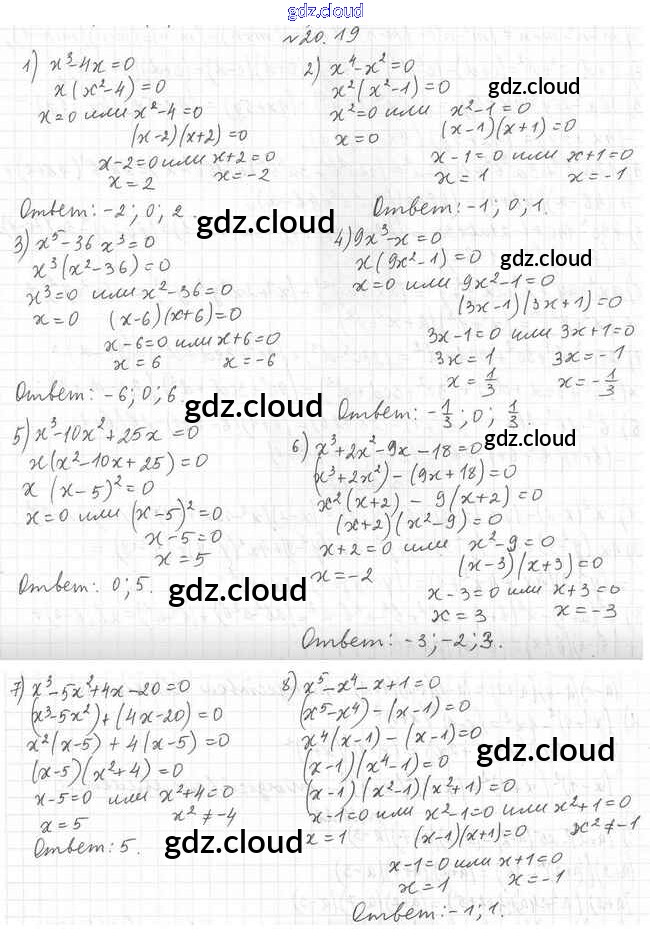 gdz.cloud
№20.19
1) x³-4x=0
x(x²-4)=0
x=0 или x²-4=0
(x-2)(x+2)=0
x-2=0 или x+2=0
x=2 x=-2
Ответ: -2; 0; 2.
2) x⁴-x²=0
x²(x²-1)=0
gdz.cloud
x²=0 или x²-1=0
x=0 (x-1)(x+1)=0
x-1=0 или x+1=0
x=1 x=-1
Ответ: -1; 0; 1.
gdz.cloud
3) x⁵-36x³=0
x³(x²-36)=0
x³=0 или x²-36=0
x=0 (x-6)(x+6)=0
x-6=0 или x+6=0
x=6 x=-6
Ответ: -6; 0; 6.
gdz.cloud
4) 9x³-x=0
x(9x²-1)=0
gdz.cloud
x=0 или 9x²-1=0
(3x-1)(3x+1)=0
3x-1=0 или 3x+1=0
3x=1 3x=-1
x=1/3 x=-1/3
Ответ: -1/3; 0; 1/3.
gdz.cloud
5) x³-10x²+25x=0
x(x²-10x+25)=0
x(x-5)²=0
x=0 или (x-5)²=0
x-5=0
x=5
Ответ: 0; 5.
gdz.cloud
6) x³+2x²-9x-18=0
(x³+2x²)-(9x+18)=0
x²(x+2)-9(x+2)=0
(x+2)(x²-9)=0
x+2=0 или x²-9=0
x=-2 (x-3)(x+3)=0
x-3=0 или x+3=0
x=3 x=-3
Ответ: -3; -2; 3.
7) x³-5x²+4x-20=0
(x³-5x²)+(4x-20)=0
x²(x-5)+4(x-5)=0
(x-5)(x²+4)=0
x-5=0 или x²+4=0
x=5 x²≠-4
Ответ: 5.
gdz.cloud
8) x⁵-x⁴-x+1=0
(x⁵-x⁴)-(x-1)=0
x⁴(x-1)-(x-1)=0
gdz.cloud
(x-1)(x⁴-1)=0
(x-1)(x²-1)(x²+1)=0
x-1=0 или x²-1=0 или x²+1=0
x=1 (x-1)(x+1)=0 x²≠-1
x-1=0 или x+1=0
x=1 x=-1
Ответ: -1; 1.